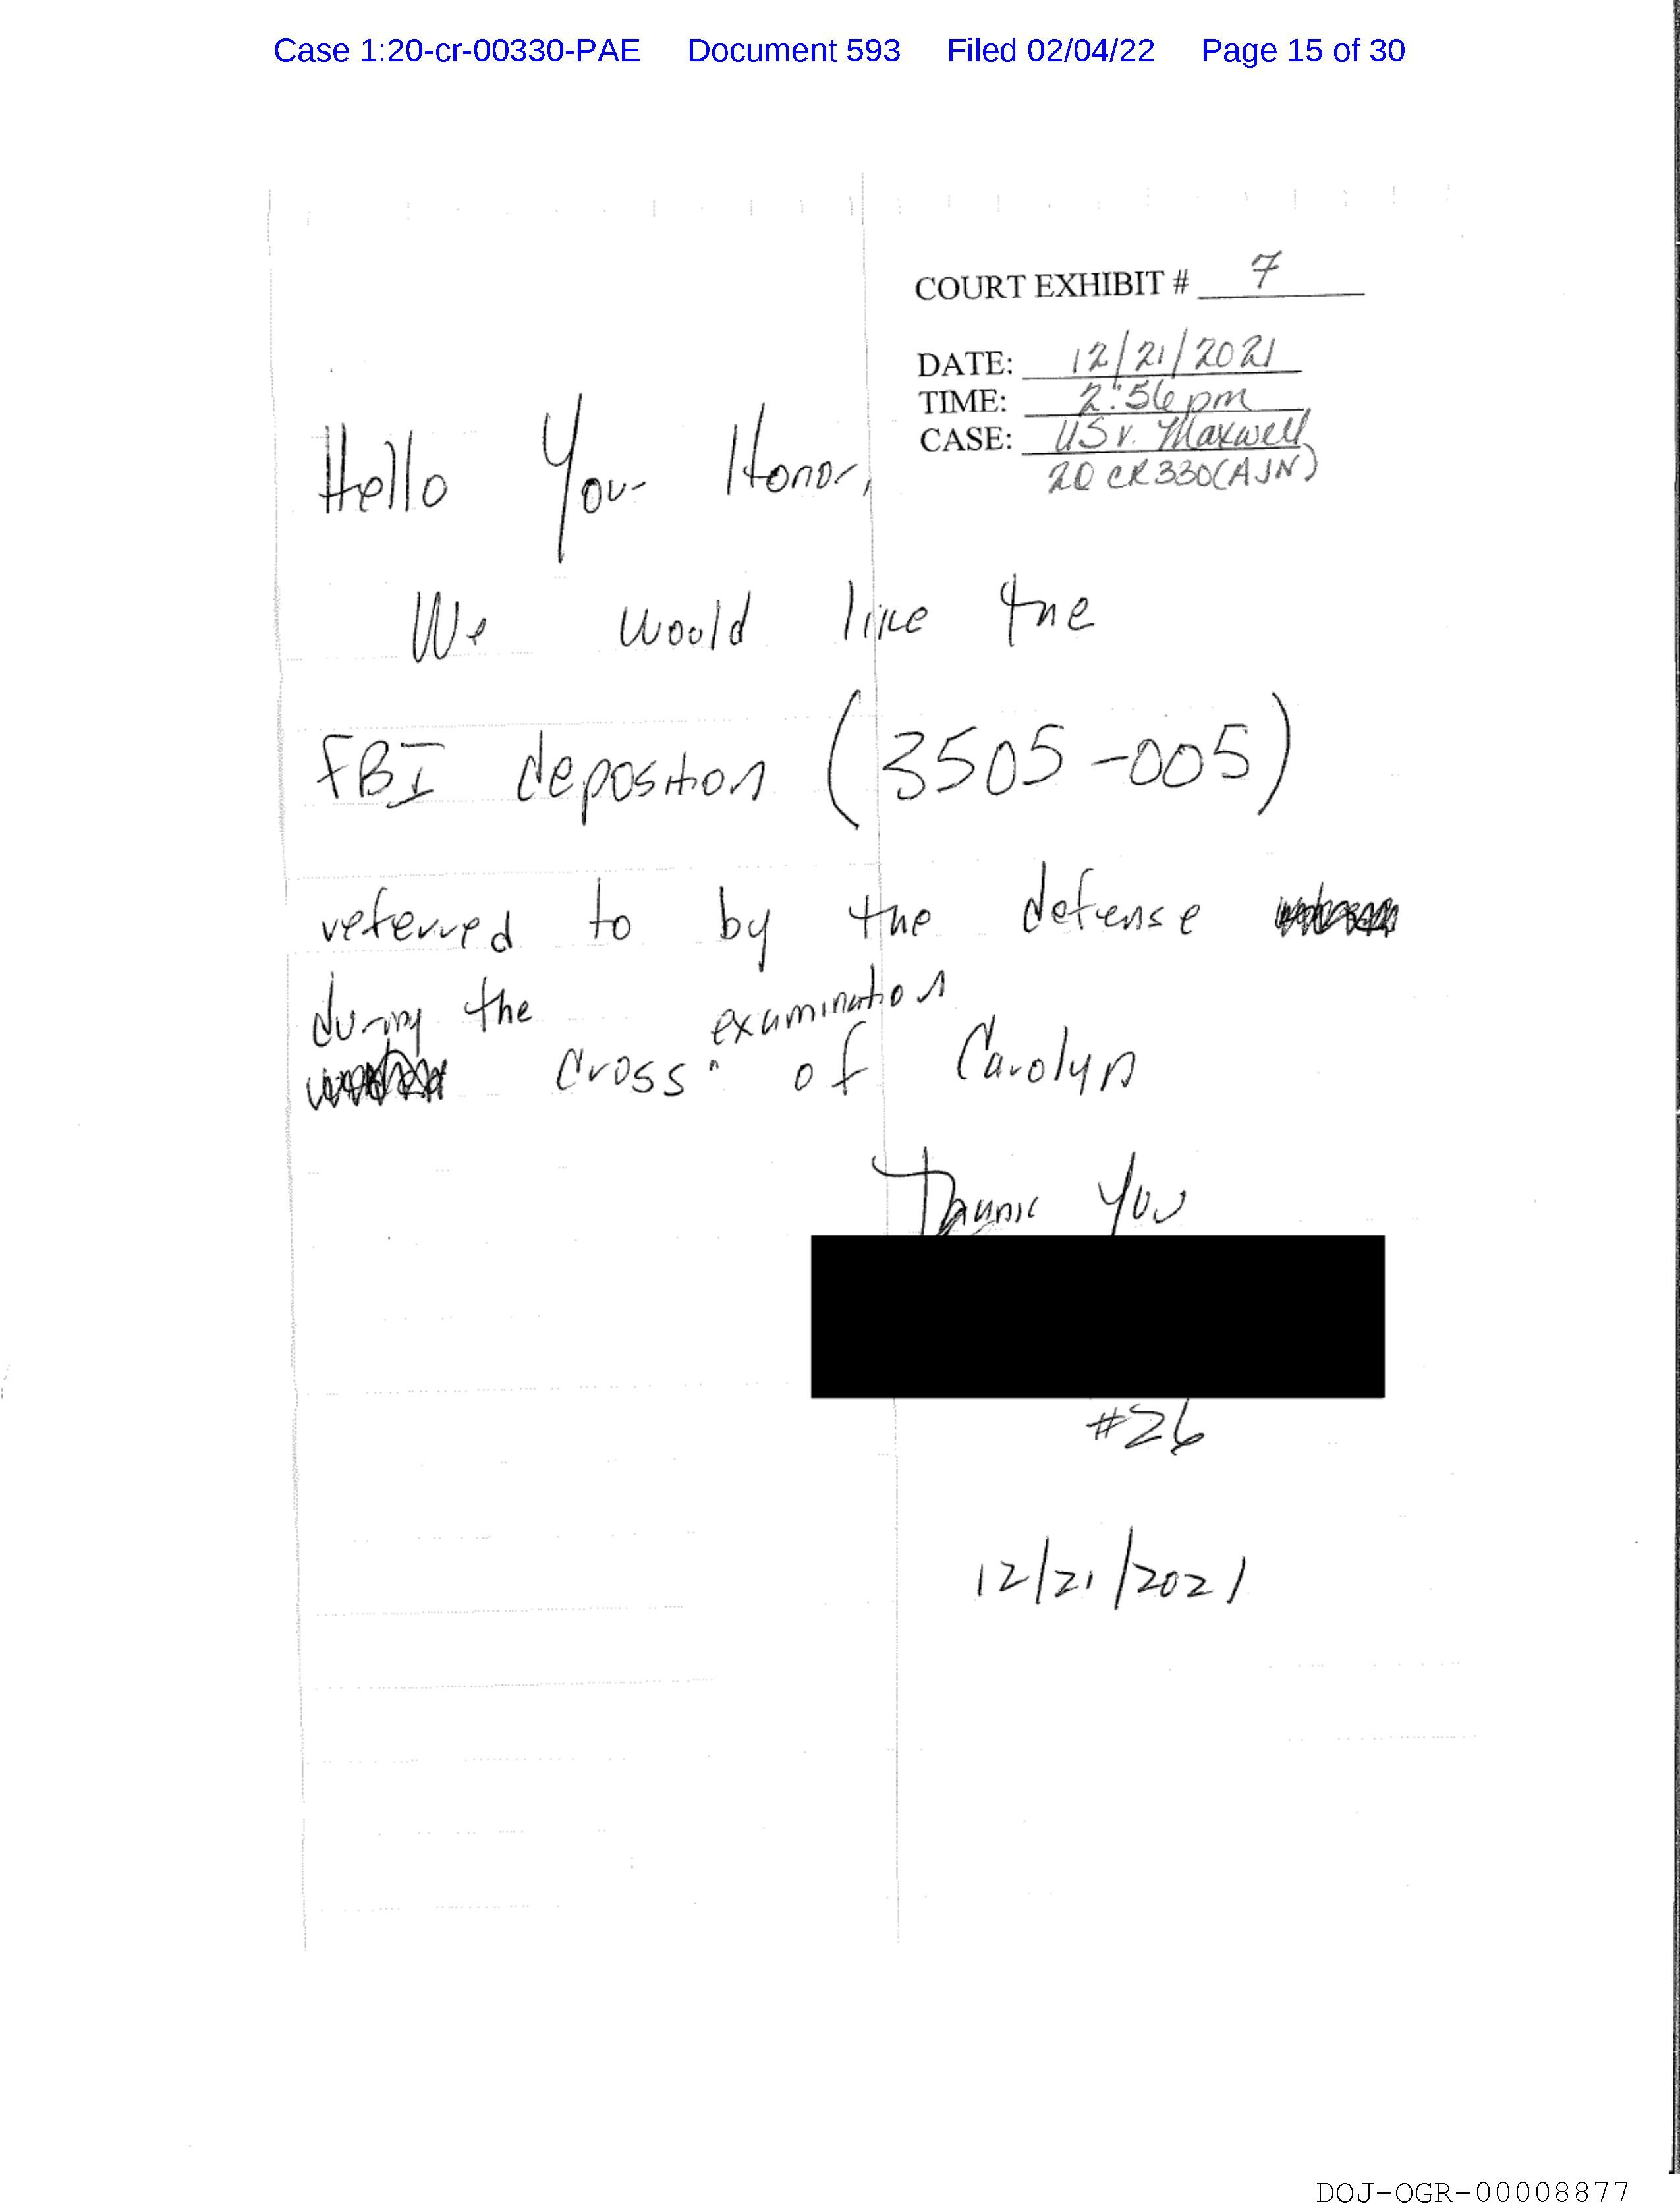 Case 1:20-cr-00330-PAE Document 593 Filed 02/04/22 Page 15 of 30
COURT EXHIBIT # 7
DATE: 12/21/2021
TIME: 2:56 pm
CASE: US v. Maxwell
20 CR 330 (AJN)
Hello Your Honor,
We would like the
FBI deposition (3505-005)
referred to by the defense
during the
cross^ examination of Carolyn
Thank You
#26
12/21/2021
DOJ-OGR-00008877